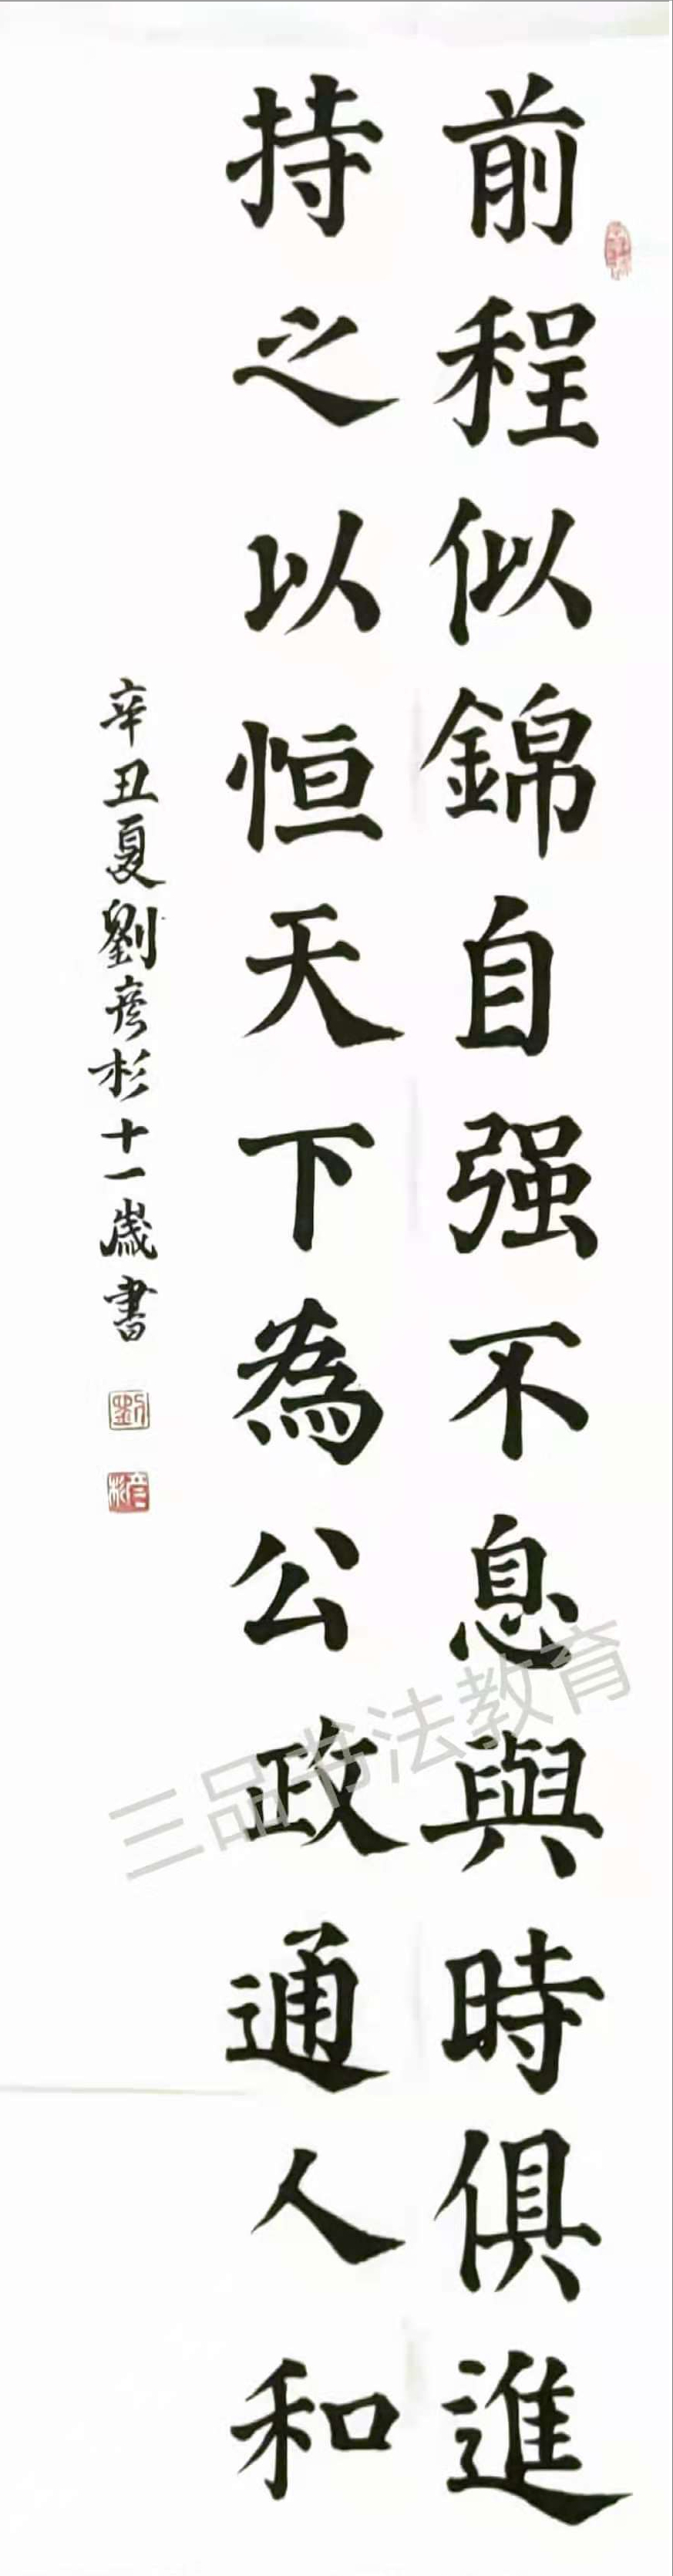 前程似錦自强不息與時俱進
持之以恒天下為公政通人和
辛丑夏劉彦杉十一歲書
劉
彦杉
三品书法教育